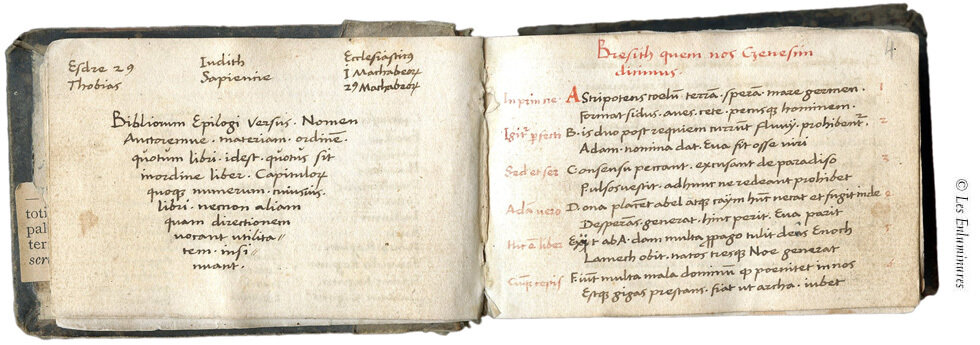 Esdre 29
Thobias
Iudith
Sapiencie
Ecclesiasticus
I Machabeoꝝ
29 Machabeoꝝ
Bibliorum Epilogi Versus. Nomen
Auctoremue. materiam. ordinē.
quotum libri. idest. quotus sit
inordine liber. Capituloꝝ
quoqꝫ numerum. cuiusuis
libri. necnon aliam
quam directionem
uocant utilita//
tem. insi
nuant.
toti
pal
ter
scri
4
Bresith quem nos Genesim
dicimus
In princine Astripotens coelum. terrā. sperā. mare germen. 1
format sidus. aues. rete. pecusque hominem.
Igit̄ perfecti B. is duo post requiem currunt fluuij. prohibent̄. 2
Adam. nomina dat. Eua fit osse uiri
Sed et ser Consensu peccant. excusant de paradiso 3
Pulsos uestit. adhunc ne redeant prohibet
Adā uero D. ona placent abel atque caym hunc necat et fugit inde
Desperās. generat. hinc perit. Eua parit
Hic ē liber Exit ab A. dam multa ꝓpago tulit Enoch 5
Lamech obit. natos tresque Noe generat
Cumque cepis F. iūt multa mala dominum poenitet in nos
Estque gigas prestans. fiat ut archa. iubet
© Les Enluminures